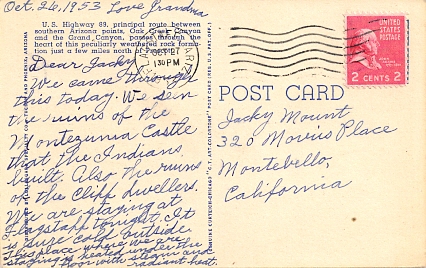 Oct. 26, 1953 Love Grandma
U. S. Highway 89, principal route between
southern Arizona points, Oak Creek Canyon
and the Grand Canyon, passes through the
heart of this peculiarly weathered rock forma-
tion just a few miles north of Prescott.
Dear Jacky
We came through
this today. We seen
the ruins of the
Montezumia Castle
that the Indians
built. Also the ruins
of the Cliff dwellers.
We are staying at
Flagstaff tonight. It
is sure cold outside.
This place where we are
staying is heated under the
floor with steam and
radiant heat.
FLAGSTAFF
OCT 27
130 PM
UNITED
STATES
POSTAGE
2 CENTS 2
POST CARD
Jacky Mount
320 Morris Place
Montebello,
California